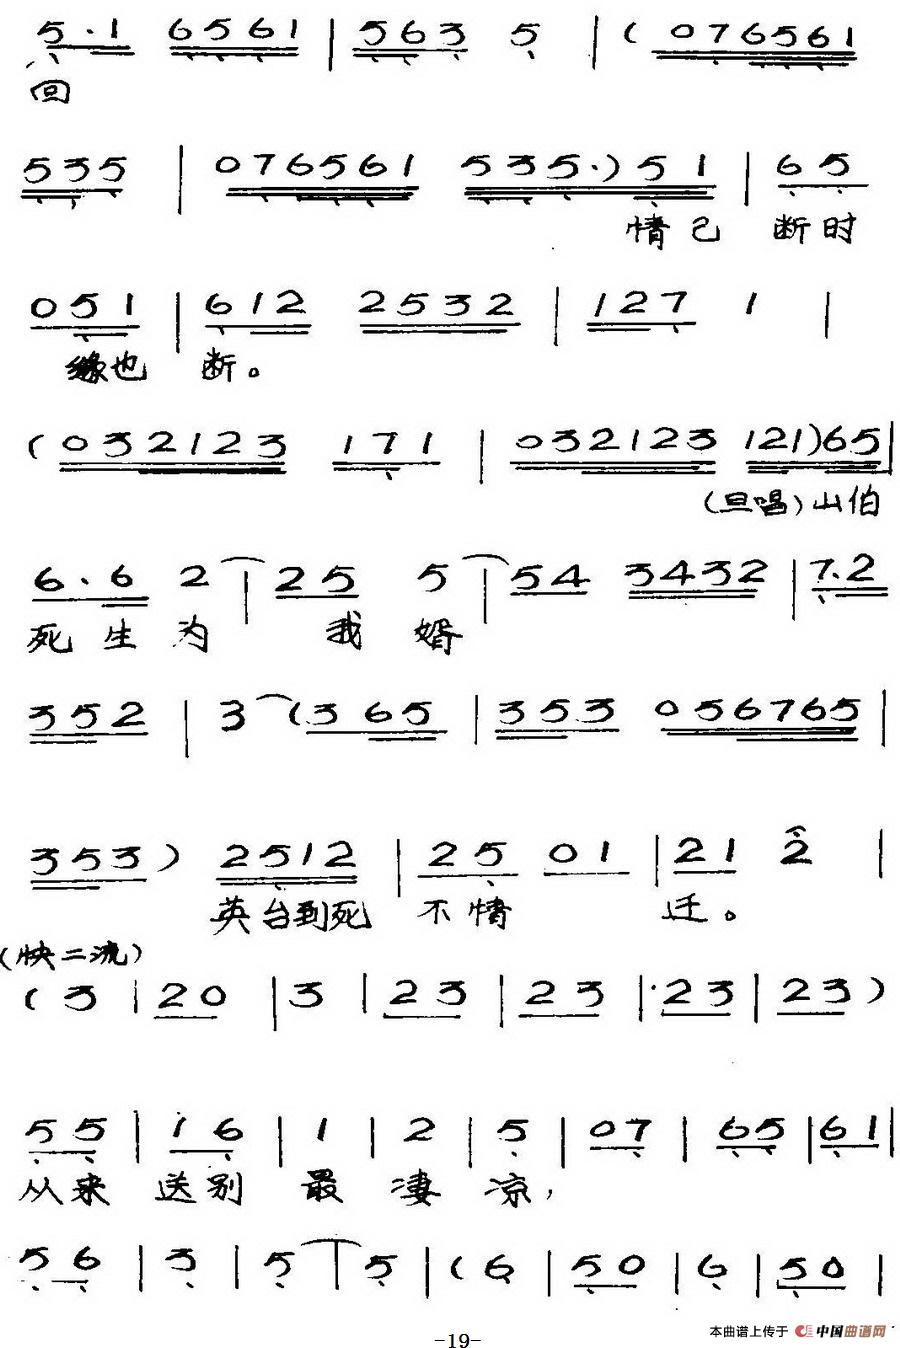 5·1 6561 | 563 5 | (076561
回
535 | 076561 535·) 51 | 65
情已 断时
051 | 612 2532 | 127 1 |
缘也 断。
(032123 171 | 032123 121)65 |
(旦唱)山伯
6·6 2 | 25 5 | 54 3432 | 7·2
死生为 我婿
352 | 3 (365 | 353 056765 |
353) 2512 | 25 01 | 21 2 |
英台到死 不情 迁。
(快二流)
(3 | 20 | 3 | 23 | 23 | 23 | 23)
55 | 16 | 1 | 2 | 5 | 07 | 65 | 61 |
从来 送别 最 凄 凉,
56 | 3 | 5 | 5 | (6 | 50 | 6 | 50 |
-19-
本曲谱上传于 中国曲谱网